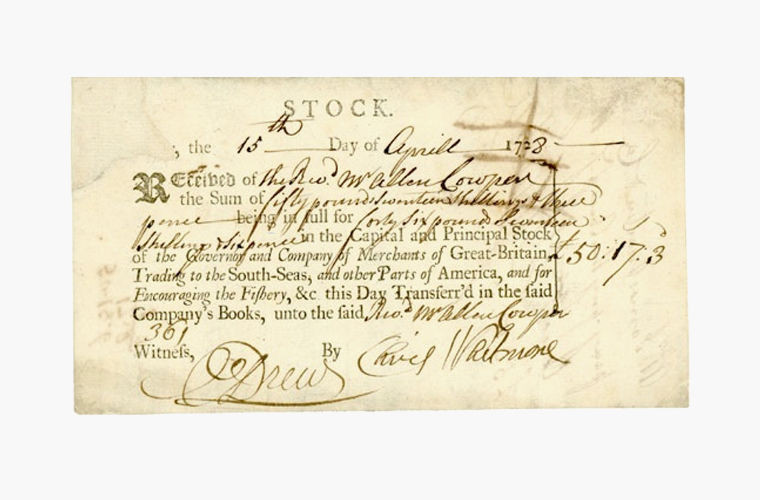 STOCK.
, the 15th Day of Aprill 1728
Received of the Revd. Mr Allen Cowper
the Sum of fifty pounds Seventeen Shillings & three
pence being in full for forty Six pounds Seventeen
Shillings & Six pence in the Capital and Principal Stock
of the Governor and Company of Merchants of Great-Britain, £50:17:3
Trading to the South-Seas, and other Parts of America, and for
Encouraging the Fishery, &c. this Day Transferr'd in the said
Company's Books, unto the said Revd. Mr Allen Cowper
361
Witness, By
Drew Whitmore